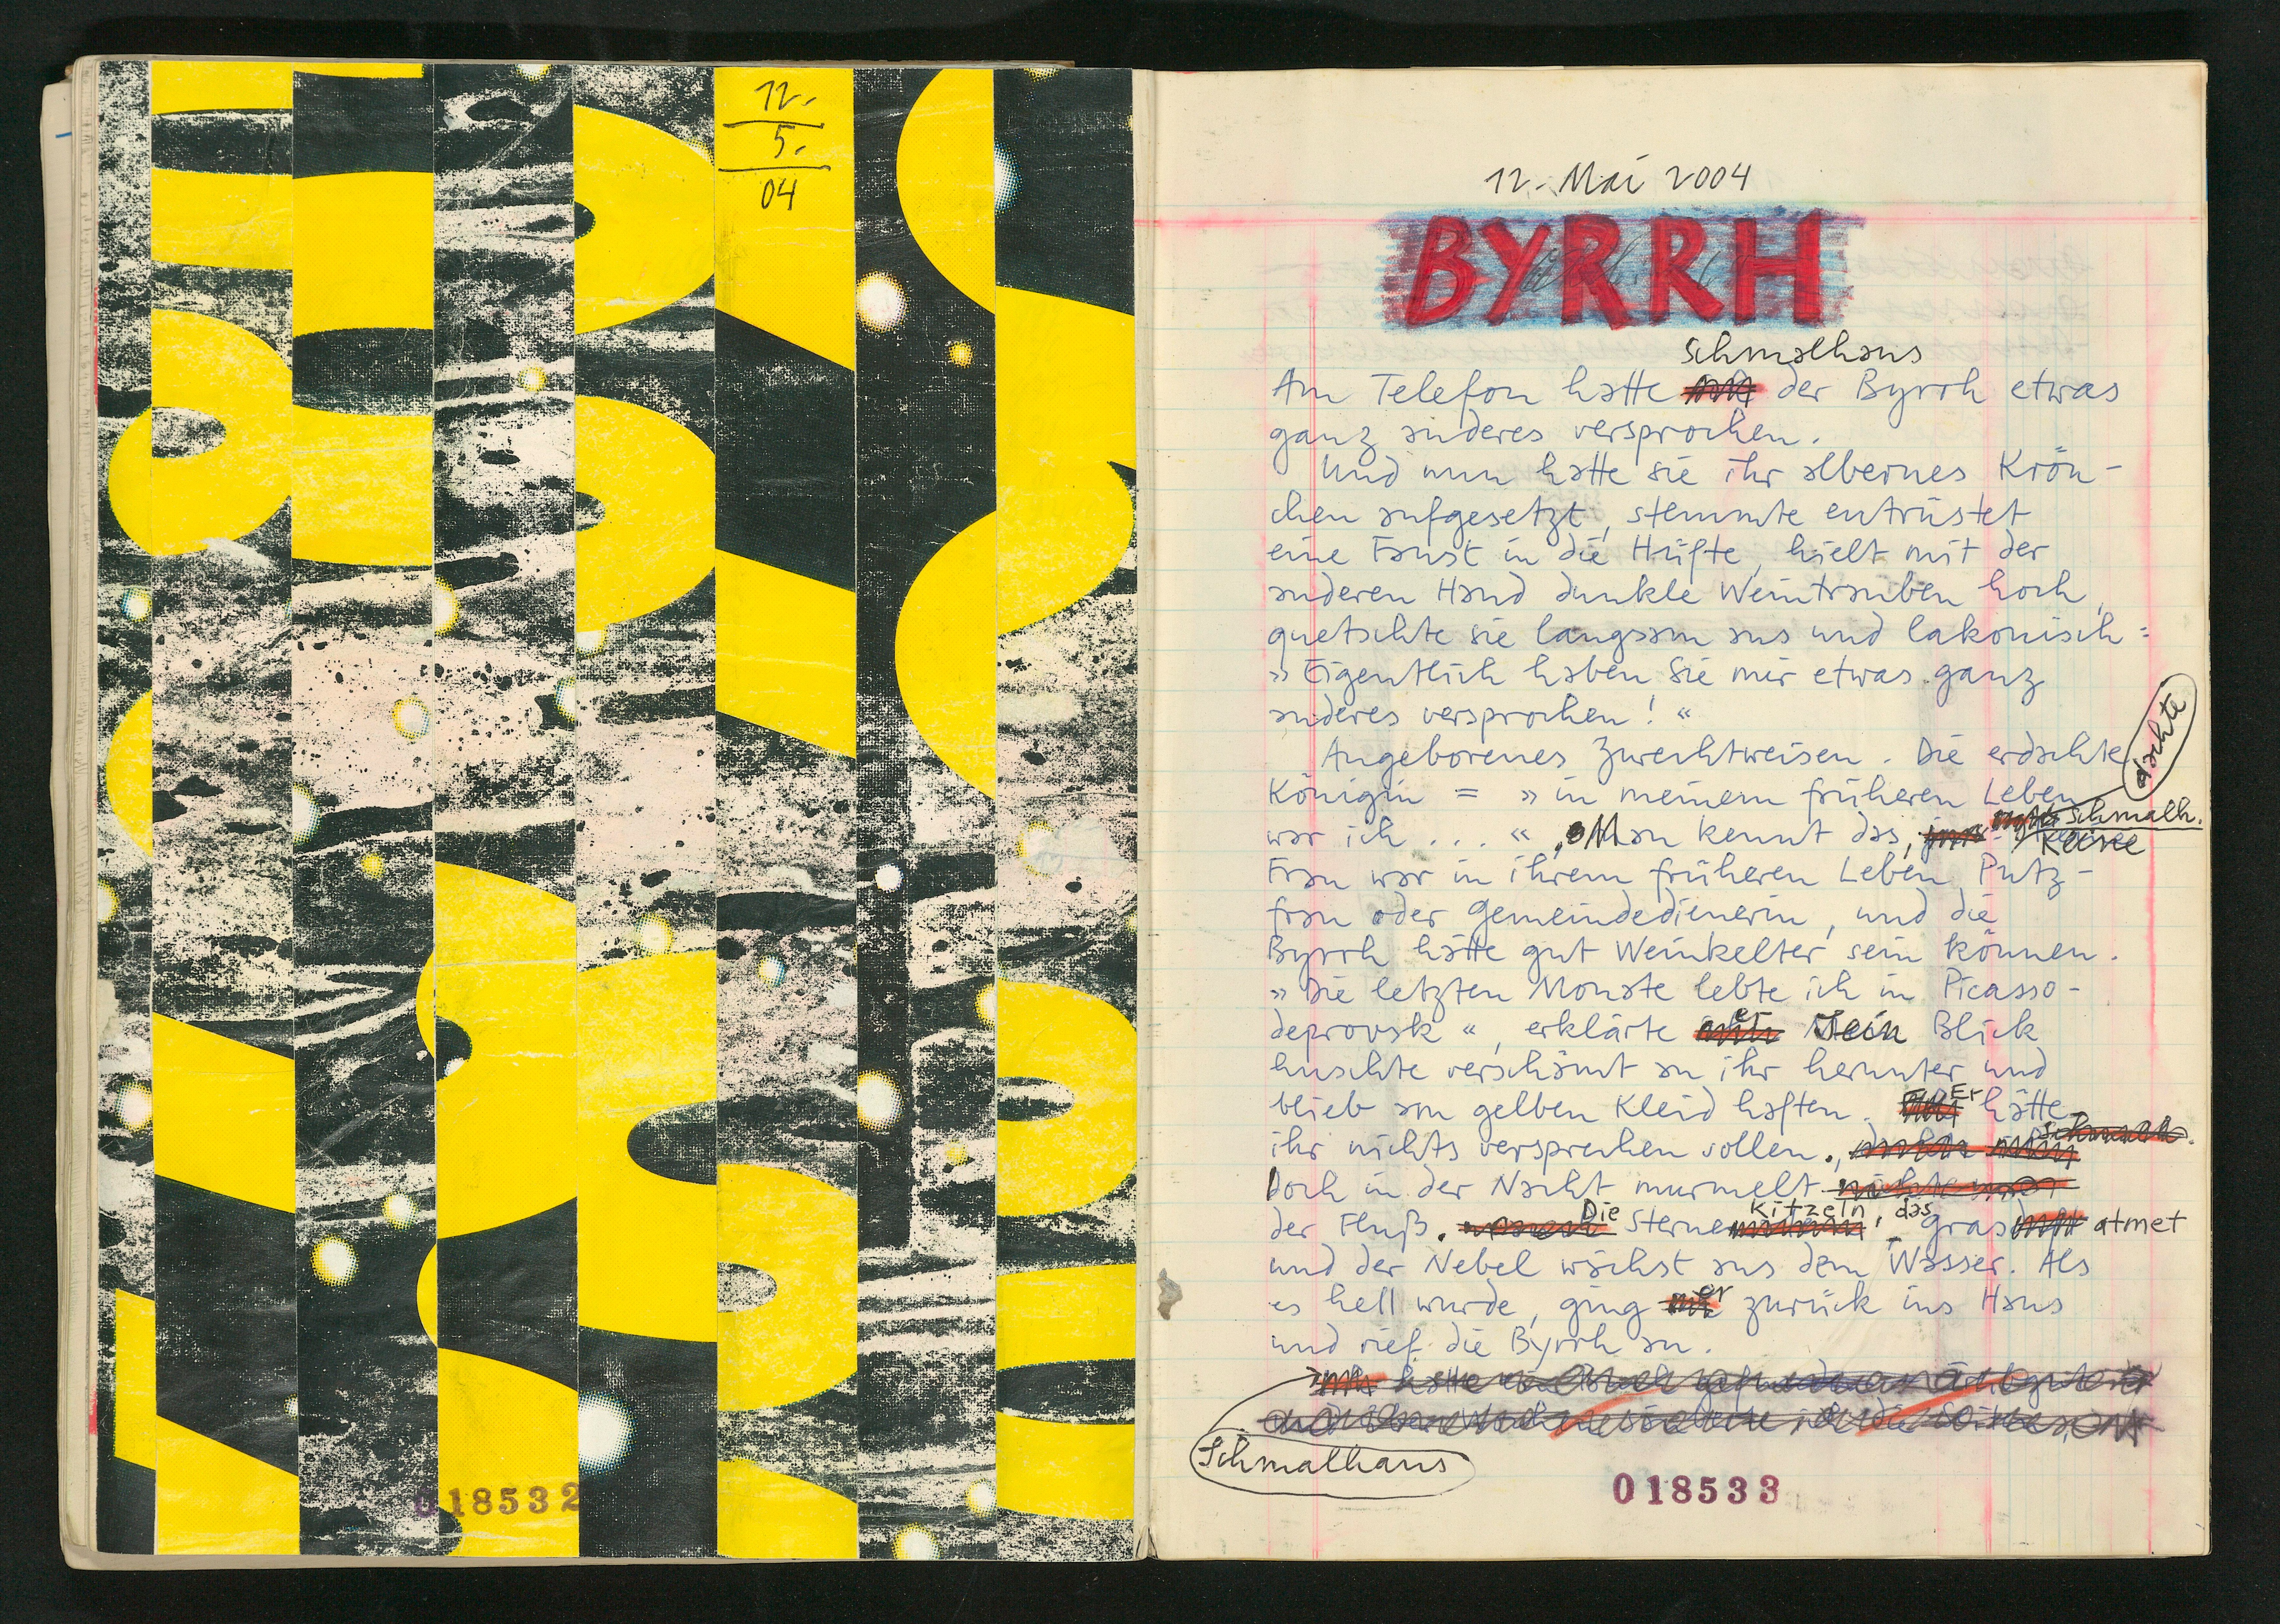 12.
5.
04
018532
12. Mai 2004
BYRRH
Schmalhans
Am Telefon hatte der Byrrh etwas
ganz anderes versprochen.
Und nun hatte sie ihr albernes Krön-
chen aufgesetzt, stemmte entrüstet
eine Faust in die Hüfte, hielt mit der
anderen Hand dunkle Weintrauben hoch,
quetschte sie langsam aus und lakonisch:
» Eigentlich haben Sie mir etwas ganz
anderes versprochen! «
Angeborenes Zurechtweisen. Die erdachte
dachte
Königin = » in meinem früheren Leben
Schmalh.
war ich ... « , Man kennt das, keine
Frau war in ihrem früheren Leben Putz-
frau oder Gemeindedienerin, und die
Byrrh hätte gut Weinkelter sein können.
» Die letzten Monate lebte ich in Picasso-
deprovsk «, erklärte er Sein Blick
huschte verschämt an ihr herunter und
blieb am gelben Kleid haften. Er hätte
Schmalh.
ihr nichts versprechen sollen.,
Doch in der Nacht murmelt
Die Kitzeln, das
der Fluß. Sterne gras atmet
und der Nebel wächst aus dem Wasser. Als
es hell wurde, ging er zurück ins Haus
und rief die Byrrh an.
Schmalhans
018533